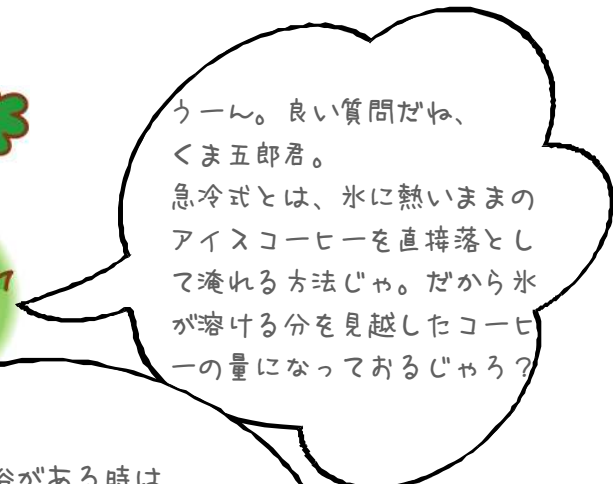 うーん。良い質問だね、
くま五郎君。
急冷式とは、氷に熱いままの
アイスコーヒーを直接落とし
て淹れる方法じゃ。だから氷
が溶ける分を見越したコーヒ
ーの量になっておるじゃろ?
がある時は